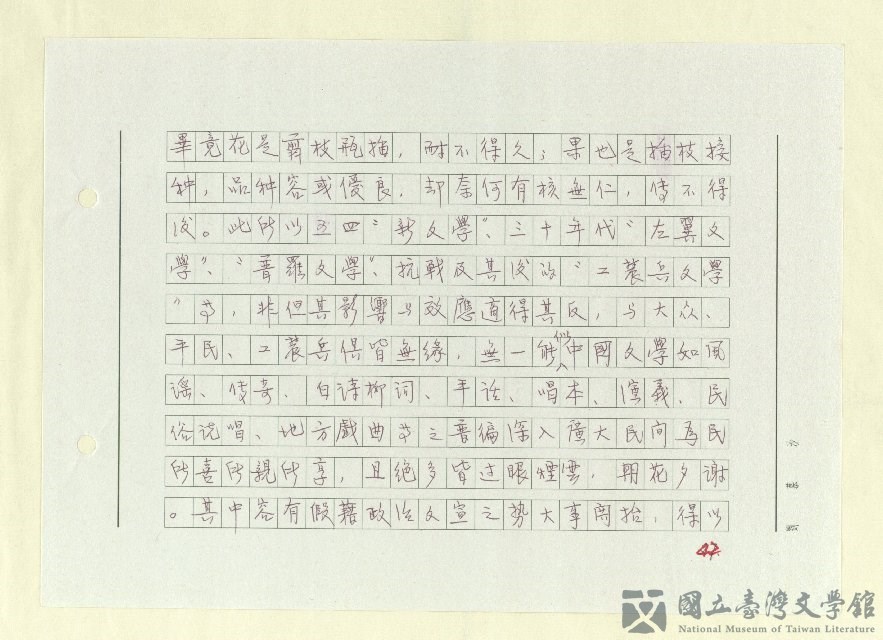 畢竟花是剪枝瓶插，耐不得久；果也是插枝接
种，品种容或優良，却奈何有核無仁，傳不得
後。此所以五四〝新文學〞、三十年代〝左翼文
學〞、〝普羅文學〞、抗戰及其後的〝工農兵文學
〞等，非但其影響与效應適得其反，与大众、
平民、工農兵俱皆無緣，無一能似中國文學如风
谣、传奇、白诗柳词、平话、唱本、演義、民
俗说唱、地方戲曲等之普徧深入廣大民间為民
所喜所親所享，且絶多皆过眼煙雲，朝花夕谢
。其中容有假藉政治文宣之势大事闹抬，得以
47
國立臺灣文學館
National Museum of Taiwan Literature